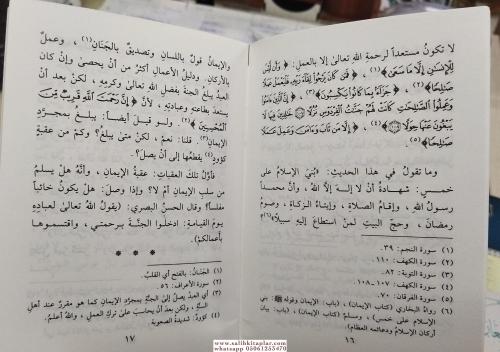 لا تكونُ مستعداً لرحمةِ اللهِ تعالى إلا بالعملِ: ﴿وَأَن لَّيْسَ
لِلْإِنسَٰنِ إِلَّا مَا سَعَىٰ﴾(١)، ﴿فَمَن كَانَ يَرْجُوا۟ لِقَآءَ رَبِّهِۦ فَلْيَعْمَلْ عَمَلًا
صَٰلِحًا﴾(٢)، ﴿جَزَآءًۢ بِمَا كَانُوا۟ يَكْسِبُونَ﴾(٣)، ﴿إِنَّ الَّذِينَ ءَامَنُوا۟
وَعَمِلُوا۟ الصَّٰلِحَٰتِ كَانَتْ لَهُمْ جَنَّٰتُ الْفِرْدَوْسِ نُزُلًا ۝ خَٰلِدِينَ فِيهَا لَا
يَبْغُونَ عَنْهَا حِوَلًا ۝﴾(٤)، ﴿إِلَّا مَن تَابَ وَءَامَنَ وَعَمِلَ عَمَلًا
صَٰلِحًا﴾(٥).
وما تقولُ في هذا الحديثِ: «بُنيَ الإسلامُ على
خمسٍ: شهادةُ أنْ لا إلهَ إلَّا اللهُ، وأنَّ محمداً
رسولُ اللهِ، وإقامُ الصلاةِ، وإيتاءُ الزكاةِ، وصومُ
رمضانَ، وحجُّ البيتِ لمنْ استطاعَ إليهِ سبيلاً»(٦)
(١) سورة النجم: ٣٩.
(٢) سورة الكهف: ١١٠.
(٣) سورة التوبة: ٨٢.
(٤) سورة الكهف: ١٠٧-١٠٨.
(٥) سورة الفرقان: ٧٠.
(٦) رواهُ البخاري (كتاب الإيمان)، (باب: الإيمان وقوله ﷺ: بني
الإسلام على خمس)، ومسلم (كتاب الإيمان)، (باب: بيان
أركان الإسلام ودعائمه العظام).
١٦
والإيمانُ قولٌ باللسانِ وتصديقٌ بالجَنَانِ(١)، وعملٌ
بالأركانِ. ودليلُ الأعمالِ أكثرُ من أنْ يحصىٰ وإنْ كانَ
العبدُ يبلغُ الجنةَ بفضلِ اللهِ تعالى وكرمِهِ، لكنْ بعد أنْ
يستعدَّ بطاعتِهِ وعبادتِهِ، لأنَّ ﴿إِنَّ رَحْمَتَ اللَّهِ قَرِيبٌ مِّنَ
الْمُحْسِنِينَ﴾(٢). ولو قيلَ أيضاً: يبلغُ بمجردِ
الإيمانِ(٣). قلنا: نعم، لكنْ متىٰ يبلغُ؟ وكمْ من عقبةٍ
كؤودٍ(٤) يقطعُها إلى أنْ يصلَ؟.
فأوَّلُ تلكَ العقباتِ: عقبةُ الإيمانِ، وأنَّهُ هلْ يسلمُ
من سلبِ الإيمانِ أم لا؟ وإذا وصلَ: هلْ يكونُ خائباً
مفلساً؟ وقالَ الحسنُ البصري: (يقولُ اللهُ تعالى لعبادِهِ
يومَ القيامةِ: ادخلوا الجنةَ برحمتي، واقتسموها
بأعمالِكمْ).
* * *
(١) الجَنَانُ: بالفتح أي القلب.
(٢) سورة الأعراف: ٥٦.
(٣) أي العبدُ يصلُ إلى الجنَّةِ بمجردِ الإيمانِ كما هو مقررٌ عند أهلِ
السنةِ، ولكن بعد أنْ يحاسبَ على تركِ العملِ، واللهُ أعلمُ.
(٤) كؤود: شديدةُ الصعوبة.
١٧
www.salihkitaplar.com
whatsapp 05061253470